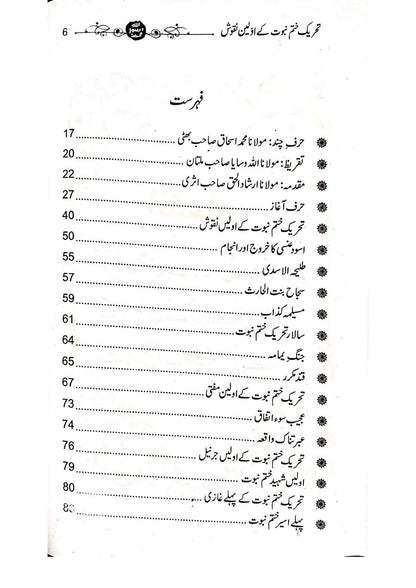 تحریک ختم نبوت کے اولین نقوش 6
فہرست
حرف چند: مولانا محمد اسحاق صاحب بھٹی 17
تقریظ: مولانا اللہ وسایا صاحب ملتان 20
مقدمہ: مولانا ارشاد الحق صاحب اثری 22
حرف آغاز 27
تحریک ختم نبوت کے اولیں نقوش 40
اسود عنسی کا خروج اور انجام 50
طلیحہ الاسدی 55
سجاح بنت الحارث 57
مسیلمہ کذاب 59
سالار تحریک ختم نبوت 61
جنگ یمامہ 64
قند مکرر 65
تحریک ختم نبوت کے اولین مفتی 67
عجیب سوء اتفاق 73
عبرتناک واقعہ 74
تحریک ختم نبوت کے اولیں جرنیل 76
اولیں شہید ختم نبوت 79
تحریک ختم نبوت کے پہلے غازی 80
پہلے اسیر ختم نبوت